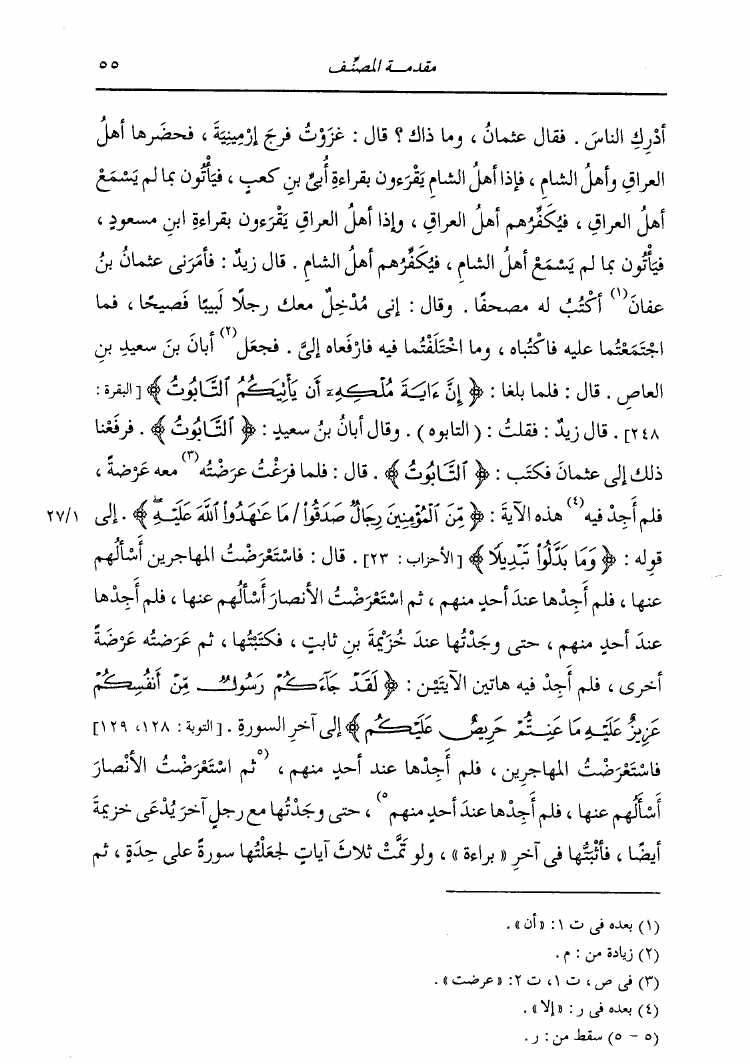 مقدمـة المصنِّف ٥٥
أدْرِكِ الناسَ . فقال عثمانُ ، وما ذاك ؟ قال : غزَوْتُ فرجَ إرْمِينِيَةَ ، فحضَرها أهلُ
العراقِ وأهلُ الشامِ ، فإذا أهلُ الشامِ يَقْرَءون بقراءةِ أُبىِّ بنِ كعبٍ ، فيَأْتُون بما لم يَسْمَعْ
أهلُ العراقِ ، فيُكَفِّرُهم أهلُ العراقِ ، وإذا أهلُ العراقِ يَقْرَءون بقراءةِ ابنِ مسعودٍ ،
فيَأْتُون بما لم يَسْمَعْ أهلُ الشامِ ، فيُكَفِّرُهم أهلُ الشامِ . قال زيدٌ : فأمَرَنى عثمانُ بنُ
عفانَ(١) أكْتُبُ له مصحفًا . وقال : إنى مُدْخِلٌ معك رجلًا لَبيبًا فَصيحًا ، فما
اجْتَمَعْتُما عليه فاكْتُباه ، وما اخْتَلَفْتُما فيه فارْفَعاه إلىَّ . فجعَل(٢) أبانَ بنَ سعيدِ بنِ
العاصِ . قال : فلما بلغا : ﴿ إِنَّ ءَايَةَ مُلْكِهِۦٓ أَن يَأْتِيَكُمُ ٱلتَّابُوتُ ﴾ [البقرة :
٢٤٨] . قال زيدٌ : فقلتُ : ( التابوه ) . وقال أبانُ بنُ سعيدٍ : ﴿ ٱلتَّابُوتُ ﴾ . فرفَعْنا
ذلك إلى عثمانَ فكتَب : ﴿ ٱلتَّابُوتُ ﴾ . قال : فلما فرَغْتُ عرَضتُه(٣) معه عَرْضةً ،
فلم أَجِدْ فيه(٤) هذه الآيةَ : ﴿ مِّنَ ٱلْمُؤْمِنِينَ رِجَالٌ صَدَقُوا۟ / مَا عَـٰهَدُوا۟ ٱللَّهَ عَلَيْهِ ۖ ﴾ . إلى ٢٧/١
قولِه : ﴿ وَمَا بَدَّلُوا۟ تَبْدِيلًا ﴾ [الأحزاب : ٢٣] . قال : فاسْتَعْرَضْتُ المهاجرين أَسْأَلُهم
عنها ، فلم أَجِدْها عندَ أحدٍ منهم ، ثم اسْتَعْرَضْتُ الأنصارَ أَسْأَلُهم عنها ، فلم أَجِدْها
عندَ أحدٍ منهم ، حتى وجَدْتُها عندَ خُزَيْمةَ بنِ ثابتٍ ، فكتَبْتُها ، ثم عَرَضتُه عَرْضةً
أخرى ، فلم أَجِدْ فيه هاتين الآيتَيْن : ﴿ لَقَدْ جَآءَكُمْ رَسُولٌ مِّنْ أَنفُسِكُمْ
عَزِيزٌ عَلَيْهِ مَا عَنِتُّمْ حَرِيصٌ عَلَيْكُم ﴾ إلى آخرِ السورةِ . [التوبة : ١٢٨، ١٢٩]
فاسْتَعْرَضْتُ المهاجرِين ، فلم أَجِدْها عند أحدٍ منهم ، (٥ثم اسْتَعْرَضْتُ الأنْصارَ
أَسْأَلُهم عنها ، فلم أَجِدْها عندَ أحدٍ منهم٥) ، حتى وجَدْتُها مع رجلٍ آخرَ يُدْعَى خزيمةَ
أيضًا ، فأَثْبَتُّها فى آخرِ « براءة » ، ولو تَمَّتْ ثلاثَ آياتٍ لجعَلْتُها سورةً على حِدَةٍ ، ثم
(١) بعده فى ت ١ : « أن » .
(٢) زيادة من : م .
(٣) فى ص ، ت ١، ت ٢: « عرضت » .
(٤) بعده فى ر : « إلا » .
(٥ – ٥) سقط من : ر .